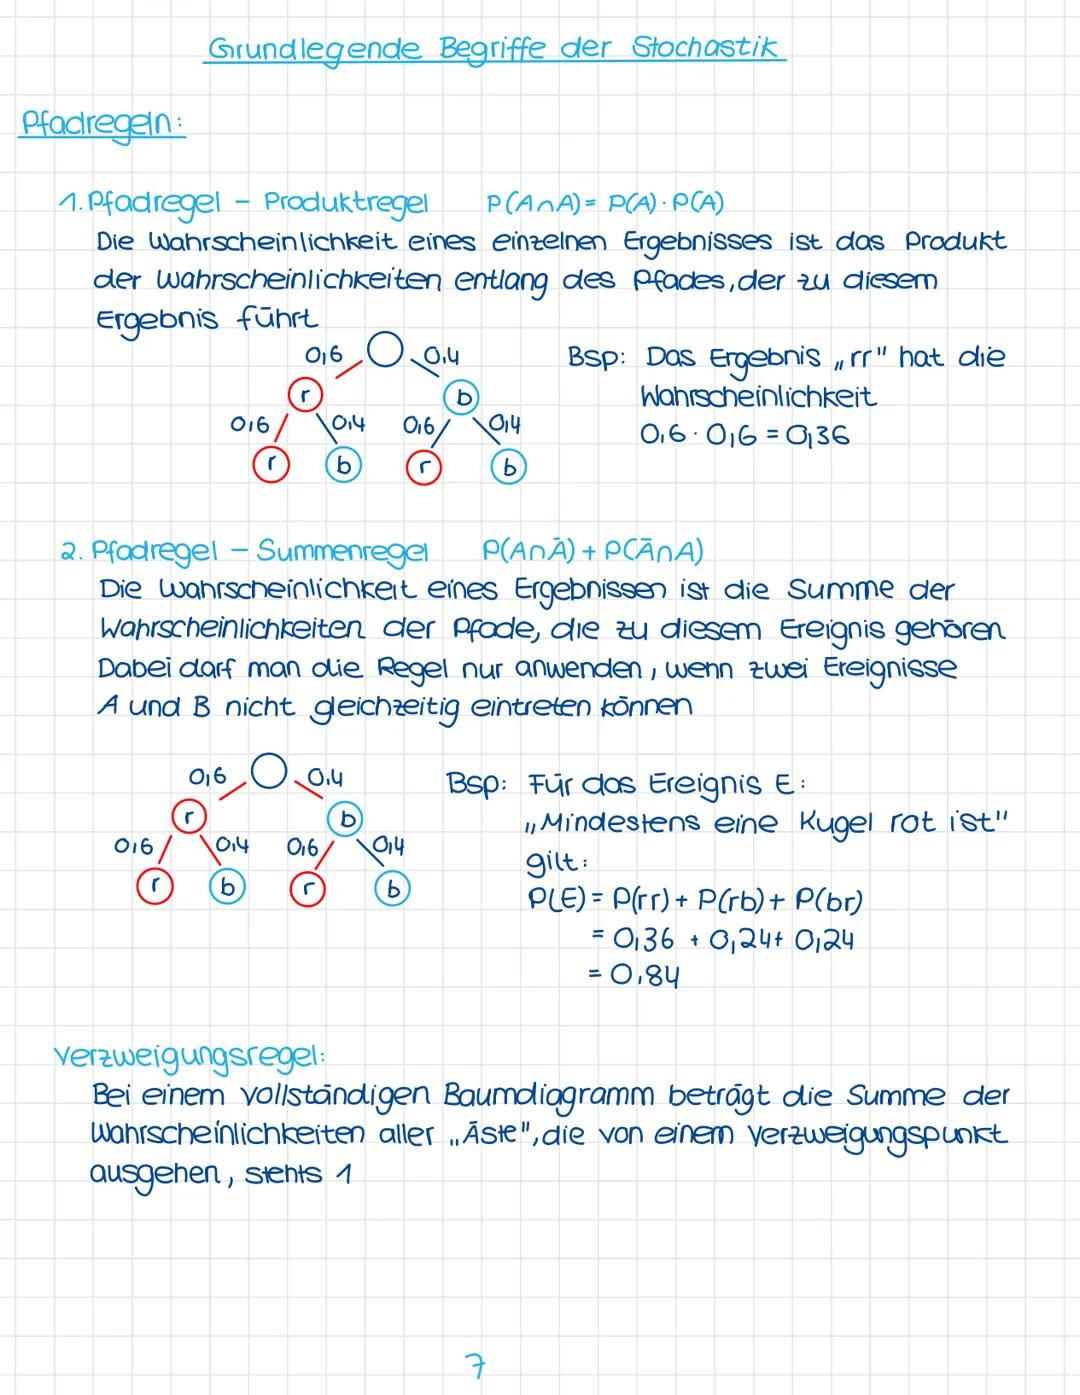 Grundlegende Begriffe der Stochastik
Pfadregeln:
1. Pfadregel – Produktregel P(A∩A) = P(A) · P(A)
Die Wahrscheinlichkeit eines einzelnen Ergebnisses ist das Produkt
der Wahrscheinlichkeiten entlang des Pfades, der zu diesem
Ergebnis führt
0,6 0,4
r b
0,6 0,4 0,6 0,4
r b r b
Bsp: Das Ergebnis „rr" hat die
Wahrscheinlichkeit
0,6 · 0,6 = 0,36
2. Pfadregel – Summenregel P(A∩Ā) + P(Ā∩A)
Die Wahrscheinlichkeit eines Ergebnissen ist die Summe der
Wahrscheinlichkeiten der Pfade, die zu diesem Ereignis gehören
Dabei darf man die Regel nur anwenden, wenn zwei Ereignisse
A und B nicht gleichzeitig eintreten können
0,6 0,4
r b
0,6 0,4 0,6 0,4
r b r b
Bsp: Für das Ereignis E:
„Mindestens eine Kugel rot ist"
gilt:
P(E) = P(rr) + P(rb) + P(br)
= 0,36 + 0,24 + 0,24
= 0,84
Verzweigungsregel:
Bei einem vollständigen Baumdiagramm beträgt die Summe der
Wahrscheinlichkeiten aller „Äste", die von einem Verzweigungspunkt
ausgehen, stehts 1
7